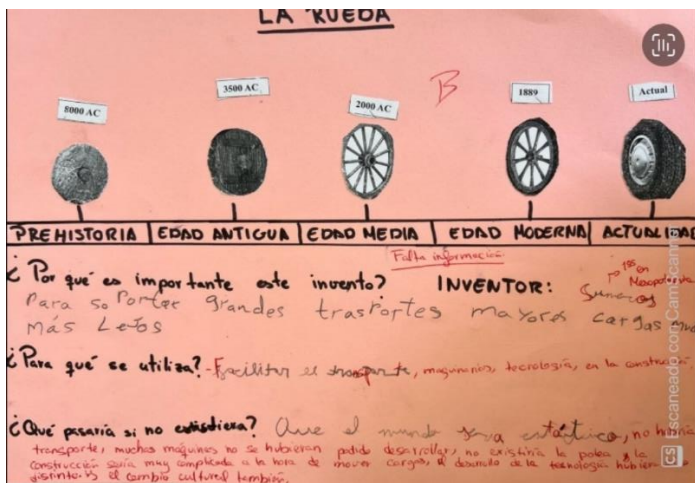 LA RUEDA
8000 AC
3500 AC
2000 AC
B
1889
Actual
PREHISTORIA EDAD ANTIGUA EDAD MEDIA EDAD MODERNA ACTUALIDAD
Falta información
¿Por qué es importante este invento? INVENTOR: Sumerios
en Mesopotamia
Para soportar grandes trasportes mayores cargas
más Lejos
¿Para qué se utiliza? - Facilitar el transporte, maquinarias, tecnología, en la
¿Qué pasaría si no existiera? Que el mundo sería estático, no habría
transporte, muchas máquinas no se hubieran podido desarrollar, no existiría la polea y la
construcción sería muy complicada a la hora de mover cargas, el desarrollo de la tecnología hubiera
el cambio cultural también.
CS Escaneado con CamScanner